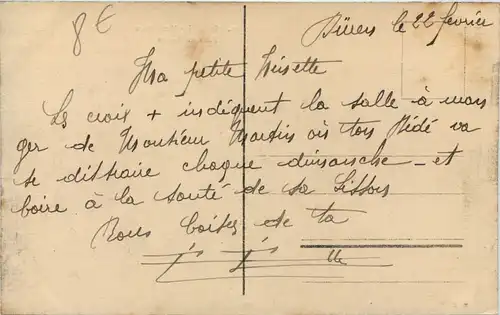 8€
le 22 fevrier
Ma petite Lisette
Les croix + indiquent la salle à man
ger de Monsieur Martin où ton Dédé va
se distraire chaque dimanche - et
boire à la santé de sa
Bons baisers de ta